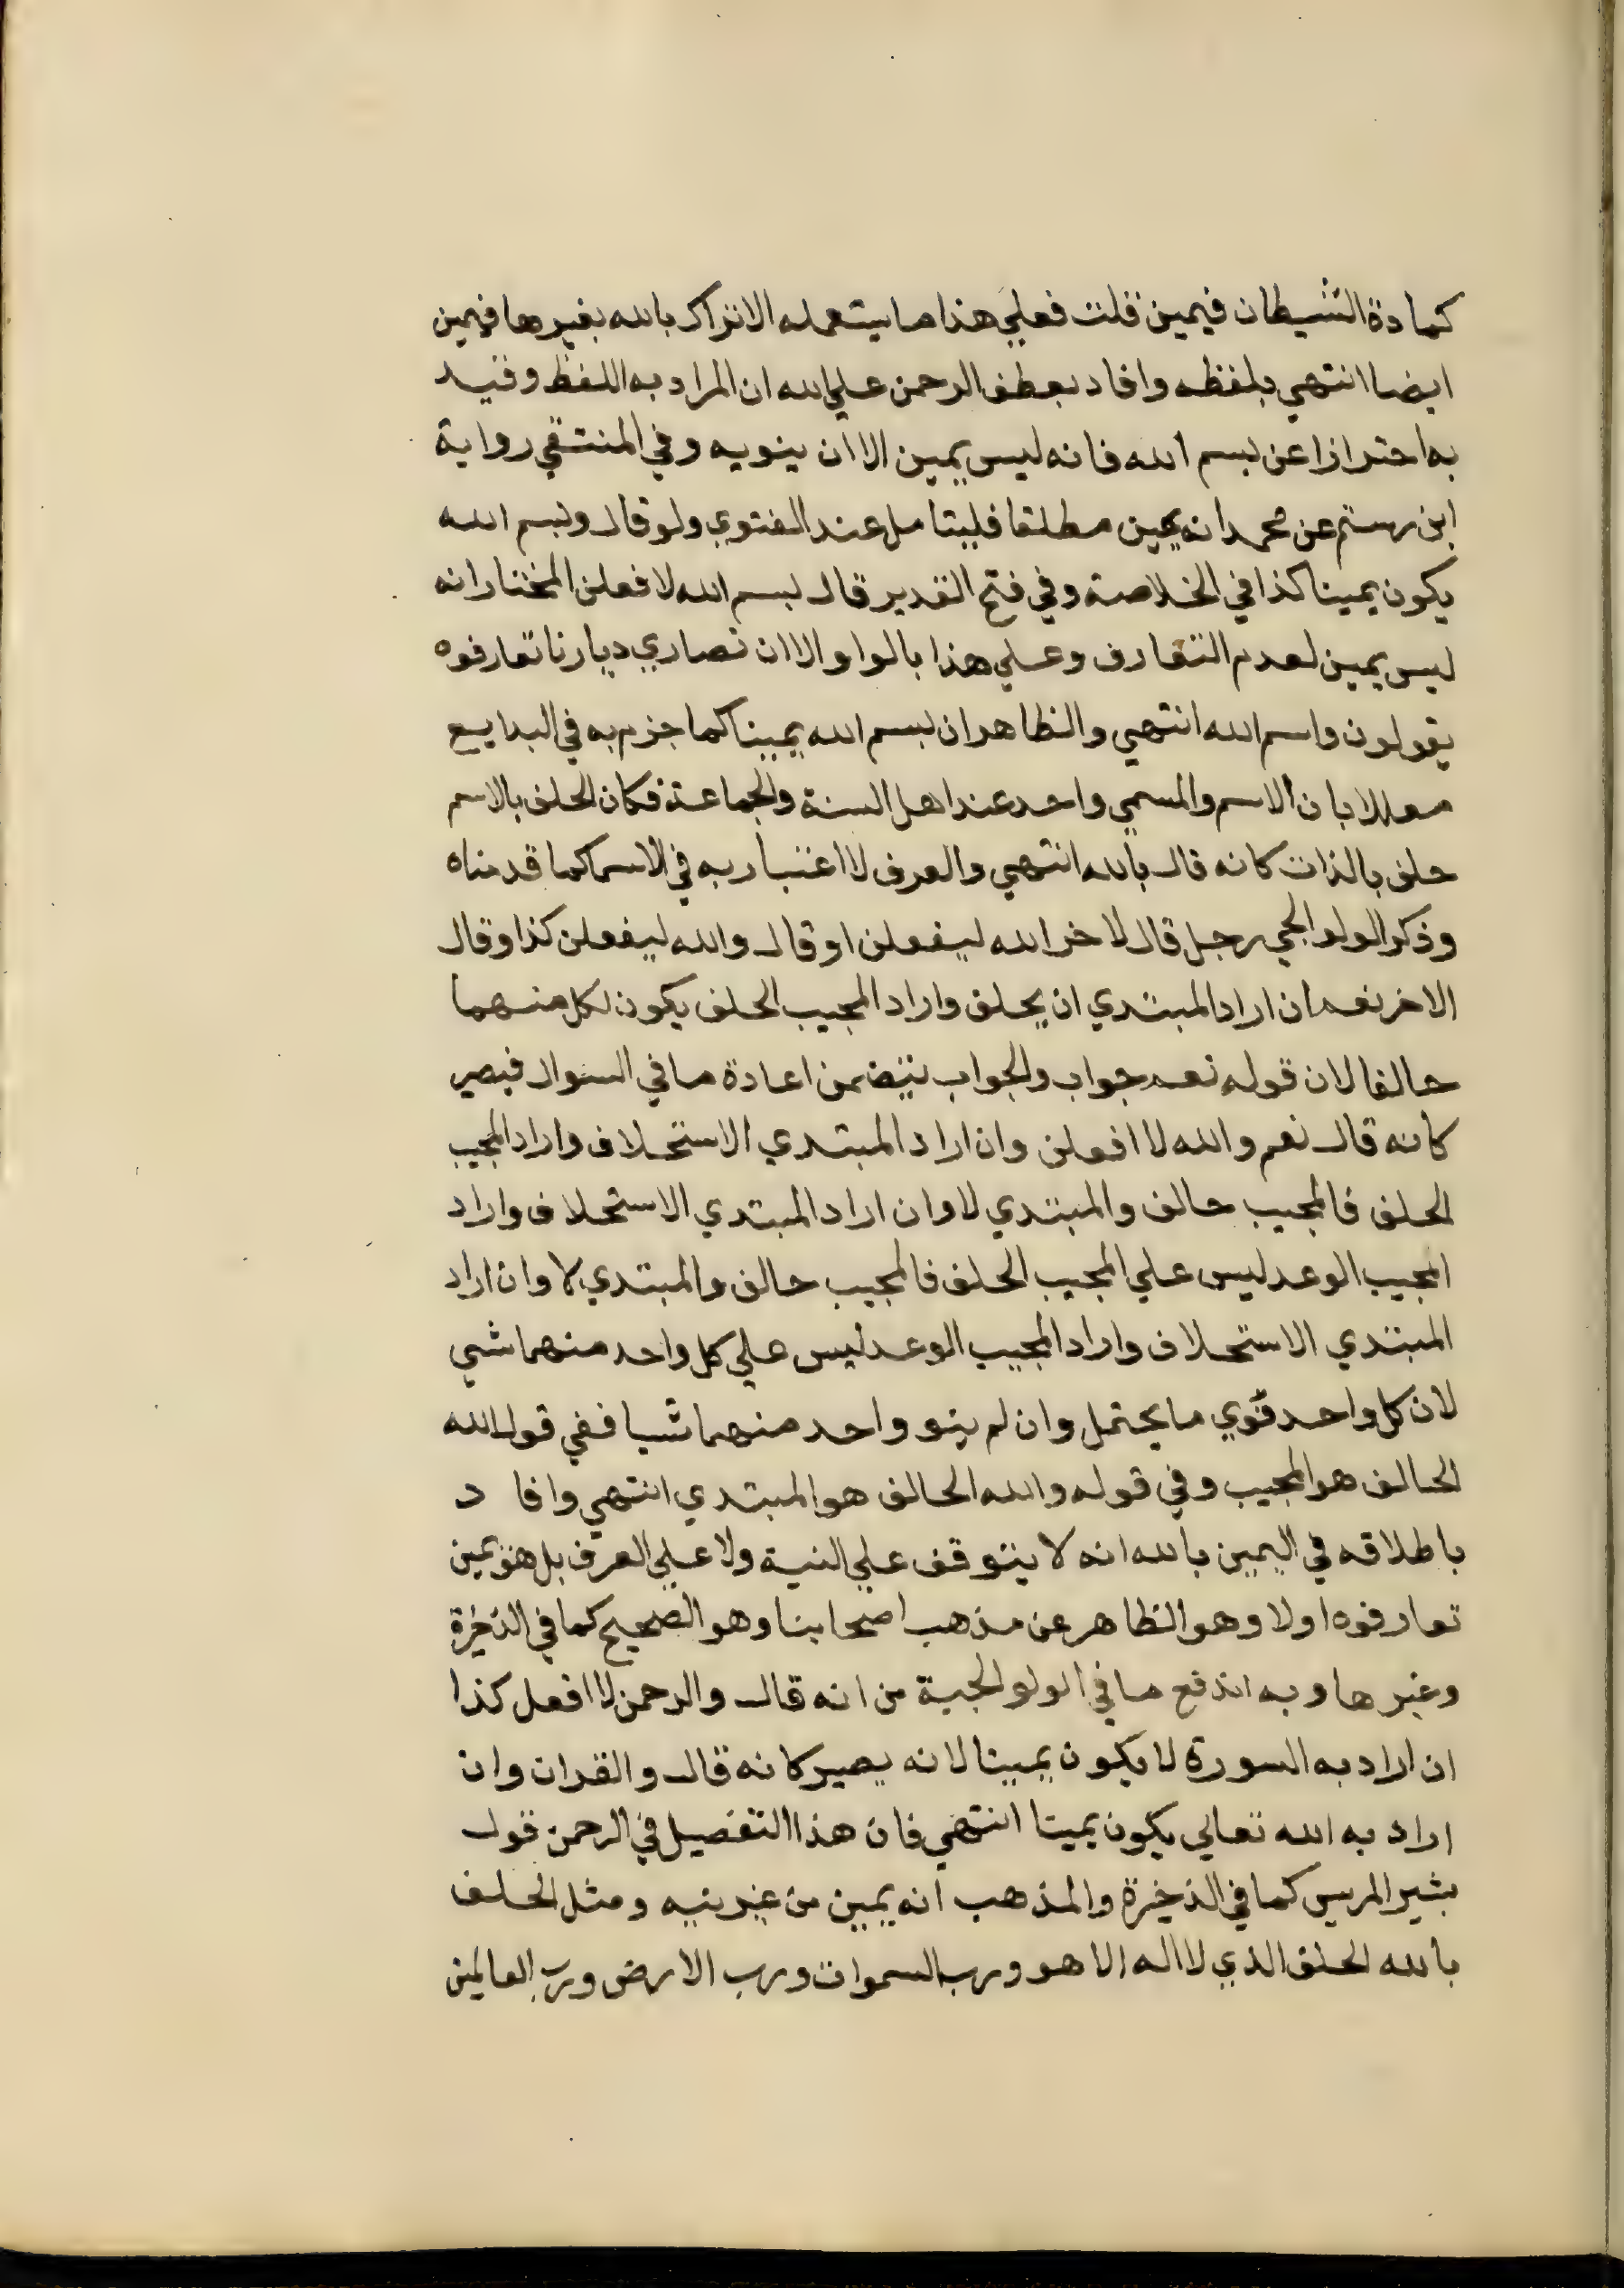 كمادة الشيطان فيمين قلت فعلي هذا ما يستعمله الاتراك بالله بغيرها فيمين
ايضا انتهي بلفظه وافاد بعطف الرحمن علي الله ان المراد به اللفظ وقيد
به احترازا عن بسم الله فانه ليس يمين الا ان ينويه وفي المنتقي رواية
ابن رستم عن محمد انه يمين مطلقا فليتامل عند الفتوي ولو قال وبسم الله
يكون يمينا كذا في الخلاصة وفي فتح القدير قال بسم الله لافعلن المختار انه
ليس يمين لعدم التعارف وعلي هذا بالواو الا ان نصاري ديارنا تعارفوه
يقولون واسم الله انتهي والظاهر ان بسم الله يمينا كما جزم به في البدايع
معللا بان الاسم والمسمي واحد عند اهل السنة والجماعة فكان الحلف بالاسم
حلف بالذات كانه قال بالله انتهي والعرف لا اعتبار به في الاسما كما قدمناه
وذكر الولوالجي رجل قال لاخر الله ليفعلن او قال والله ليفعلن كذا وقال
الاخر نعم ان اراد المبتدي ان يحلف واراد المجيب الحلف يكون لكل منهما
حالفا لان قوله نعم جواب والجواب يتضمن اعادة ما في السوال فيصير
كانه قال نعم والله لا افعلن وان اراد المبتدي الاستحلاف واراد المجيب
الحلف فالمجيب حالف والمبتدي لا وان اراد المبتدي الاستحلاف واراد
المجيب الوعد ليس علي المجيب الحلف فالمجيب حالف والمبتدي لا وان اراد
المبتدي الاستحلاف واراد المجيب الوعد ليس علي كل واحد منهما شي
لان كل واحد نوي ما يحتمل وان لم ينو واحد منهما شيا ففي قوله الله
الحالف هو المجيب وفي قوله والله الحالف هو المبتدي انتهي وافا د
باطلاقه في اليمين بالله انه لا يتوقف علي النية ولا علي العرف بل هو يمين
تعارفوه اولا وهو الظاهر عن مذهب اصحابنا وهو الصحيح كما في الذخيرة
وغيرها وبه اندفع ما في الولوالجية من انه قال والرحمن لا افعل كذا
ان اراد به السورة لا يكون يمينا لانه يصير كانه قال والقران وان
اراد به الله تعالي يكون يمينا انتهي فان هذا التفصيل في الرحمن قول
بشير المريس كما في الذخيرة والمذهب انه يمين من غير نيه ومثل الحلف
بالله الحلف الذي لا اله الا هو ورب السموات ورب الارض ورب العالمين